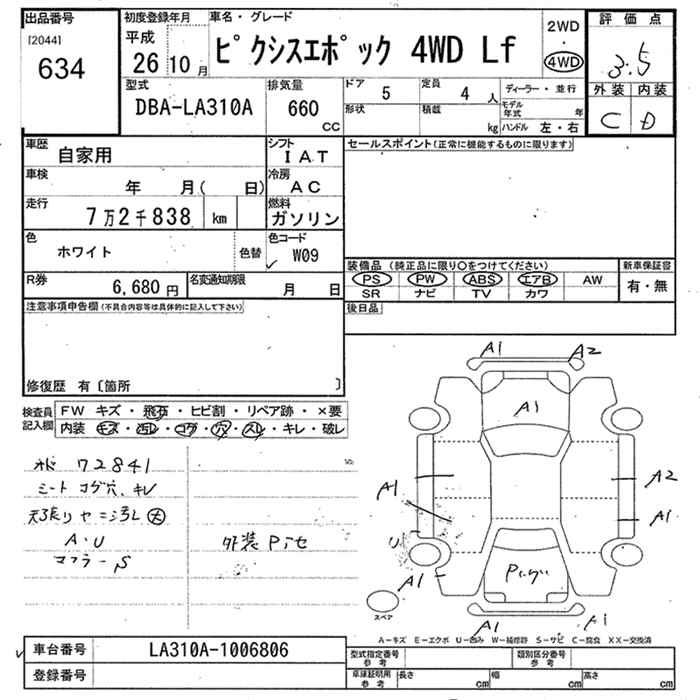 出品番号
[2044]
634
初度登録年月
平成
26 10 月
車名・グレード
ピクシスエポック 4WD Lf
2WD
・
4WD
評価点
3.5
外装 内装
C D
型式
DBA-LA310A
排気量
660
CC
ドア
5
定員
4 人
ディーラー・並行
形状
積載
kg
モデル年式 年
ハンドル 左・右
車歴
自家用
シフト
IAT
車検
年 月( 日)
冷房
AC
走行
7万2千838 km
燃料
ガソリン
色
ホワイト
色替
色コード
W09
R券
6,680 円
名変通知期限
月 日
セールスポイント(正常に機能するものに限ります)
装備品(純正品に限り○をつけてください)
新車保証書
PS PW ABS エアB AW
SR ナビ TV カワ
有・無
後日品
注意事項申告欄(不具合内容等は具体的に記入して下さい)
修復歴 有〔箇所 〕
検査員記入欄
FW キズ・飛石・ヒビ割・リペア跡・×要
内装 キズ・汚レ・コゲ・穴・スレ・キレ・破レ
72841
シート コゲ穴、キレ
天張り ヤニ汚レ 大
A・U
マフラーS
外装
A1 A2
A1
A1
A2
A1
U
A1
A1
スペア
A-キズ E-エクボ U-凹み W-補修跡 S-サビ C-腐食 XX-交換済
車台番号
LA310A-1006806
登録番号
型式指定番号
参考
類別区分番号
参考
車庫証明用
参考
長さ cm
幅 cm
高さ cm